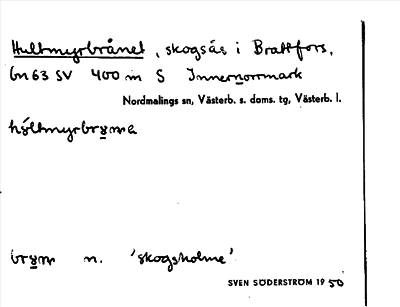 Hultmyrbrånet, skogsås i Brattfors,
bn 63 SV 400 m S Innernorrmark
Nordmalings sn, Västerb. s. doms. tg, Västerb. l.
'skogsholme'
SVEN SÖDERSTRÖM 19 50